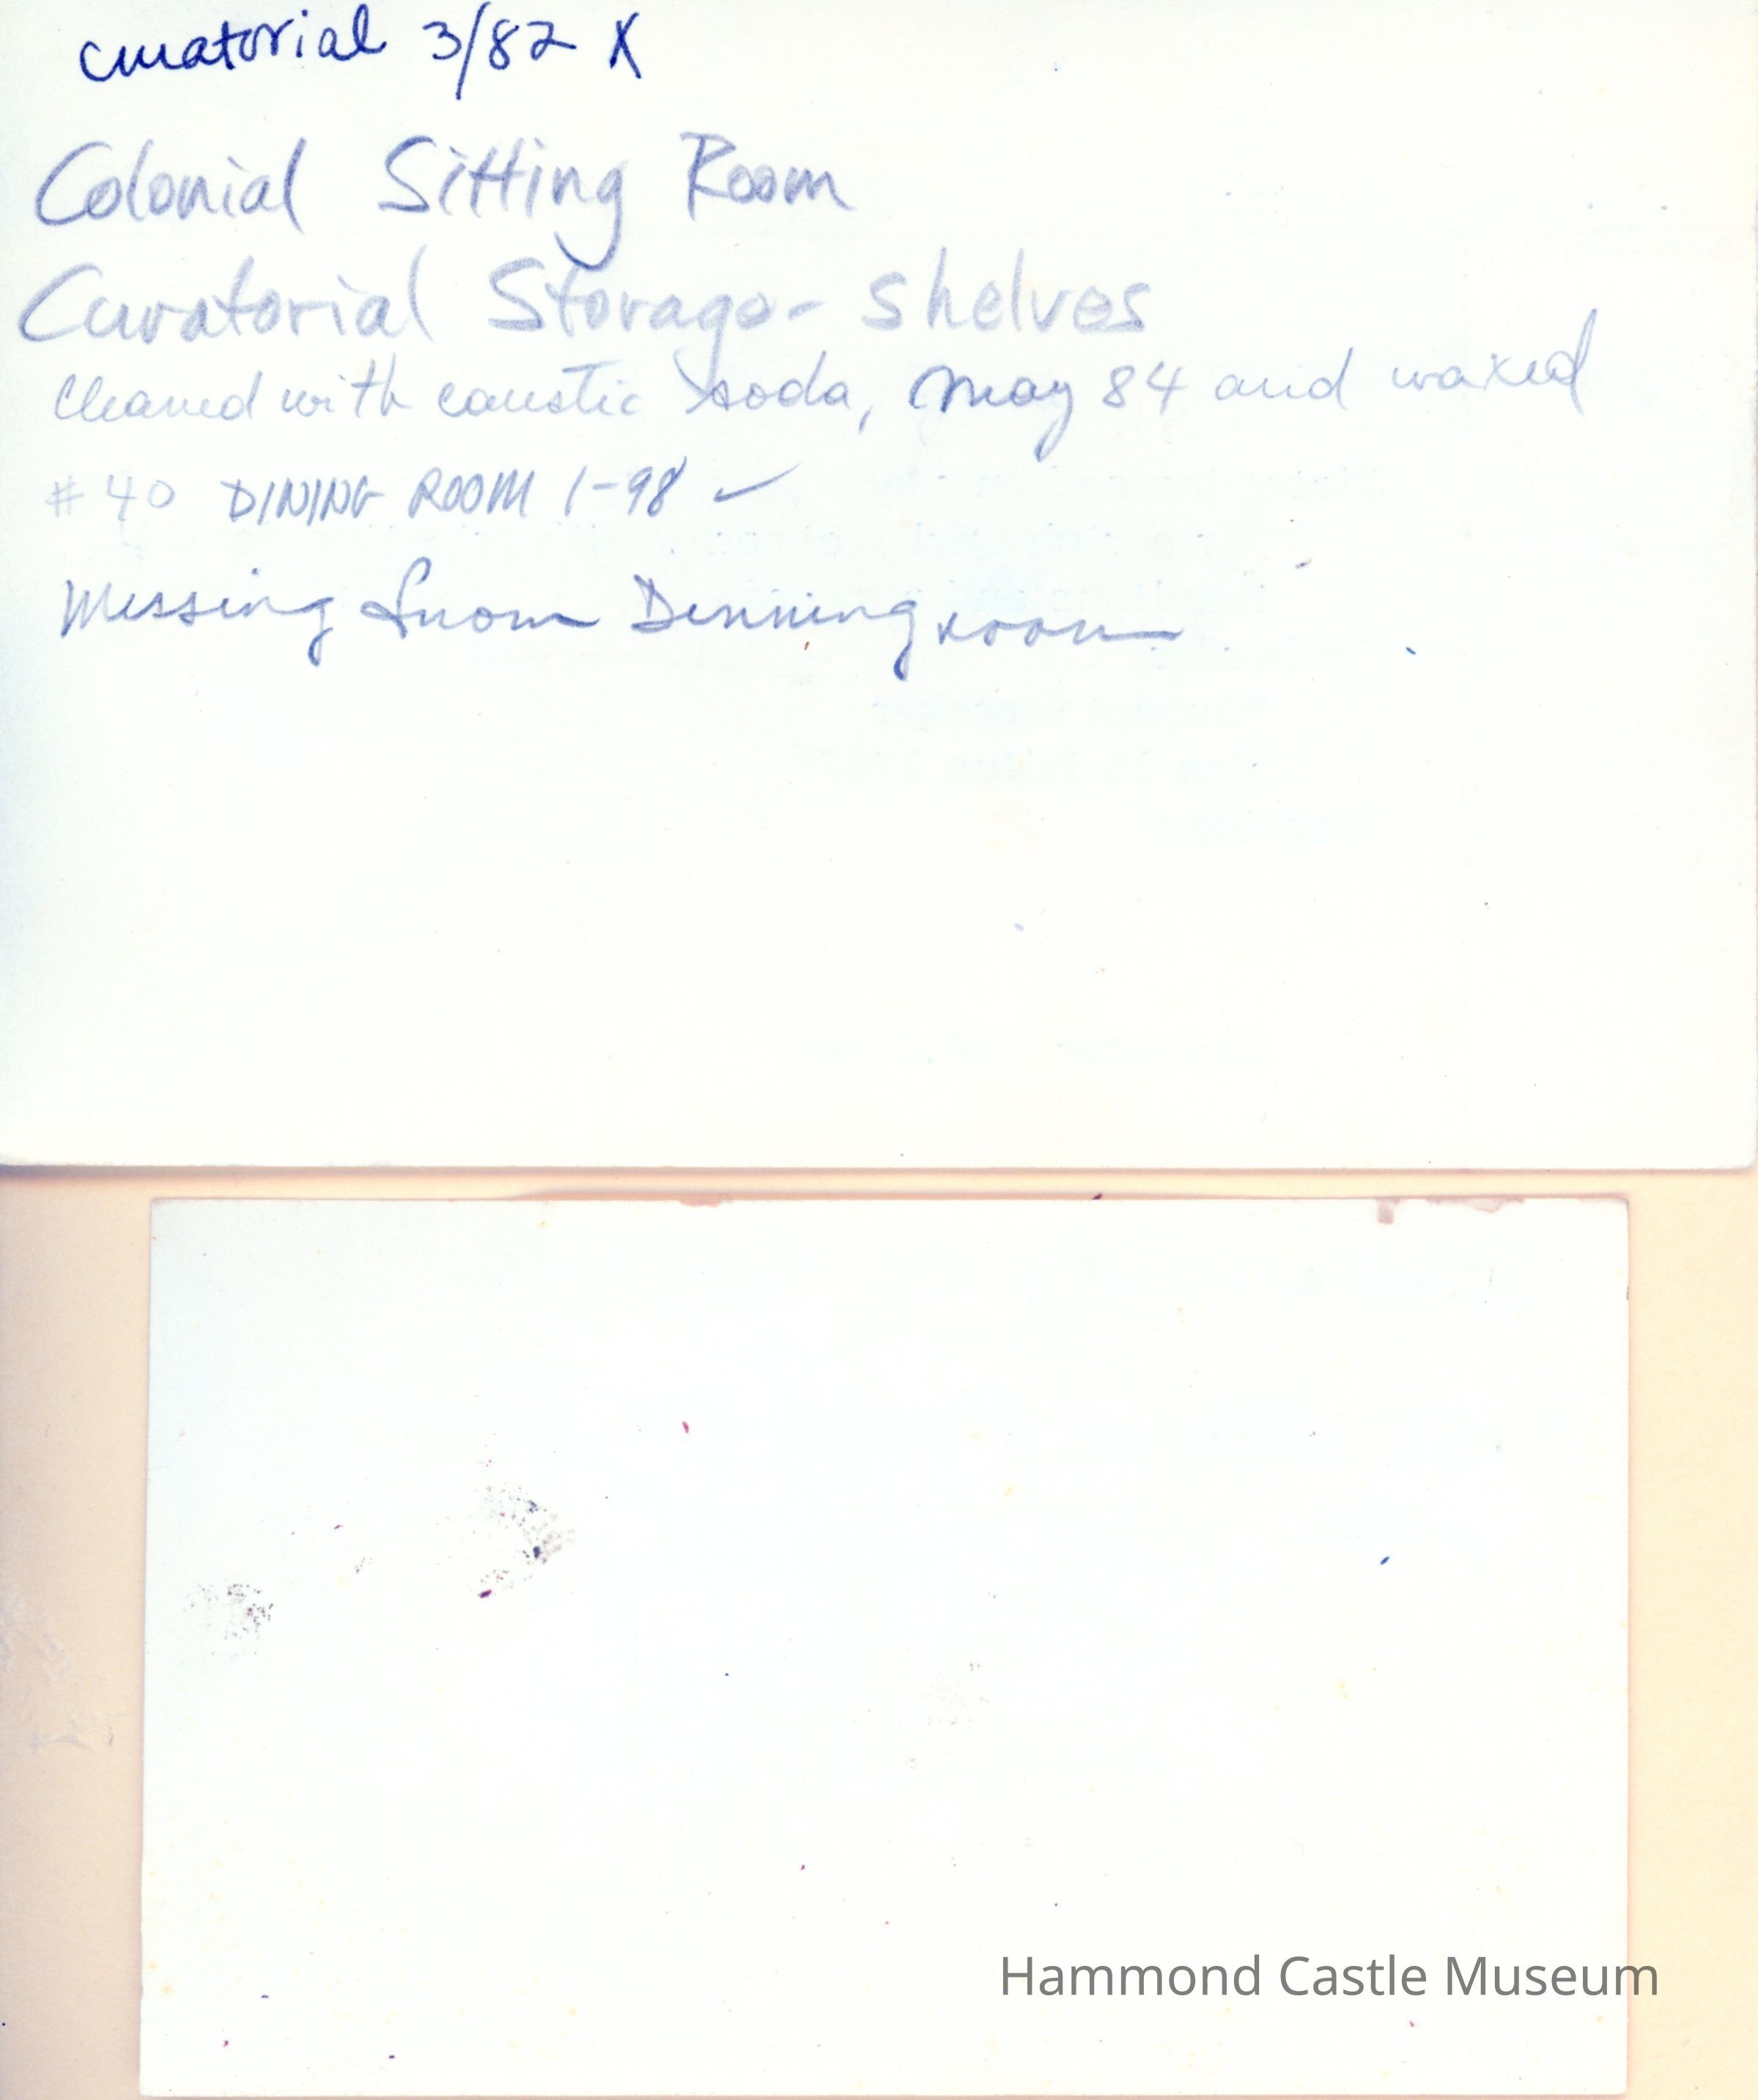 curatorial 3/82 X
Colonial Sitting Room
Curatorial Storage - shelves
Cleaned with caustic soda, May 84 and waxed
#40 DINING ROOM 1-98 ✓
Missing from Dinning room
Hammond Castle Museum